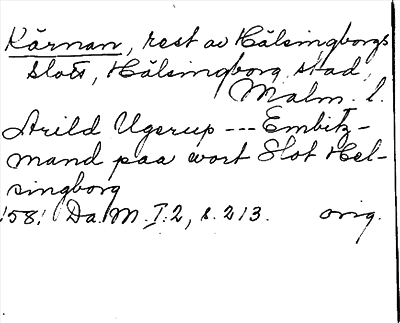 Kärnan, rest av Hälsingborgs
slott, Hälsingborg stad,
Malm. l.
Arild Ugerup --- Embitz-
mand paa wort Slot Hel-
singborg
'58! Da. M. I.2, s. 213. orig.